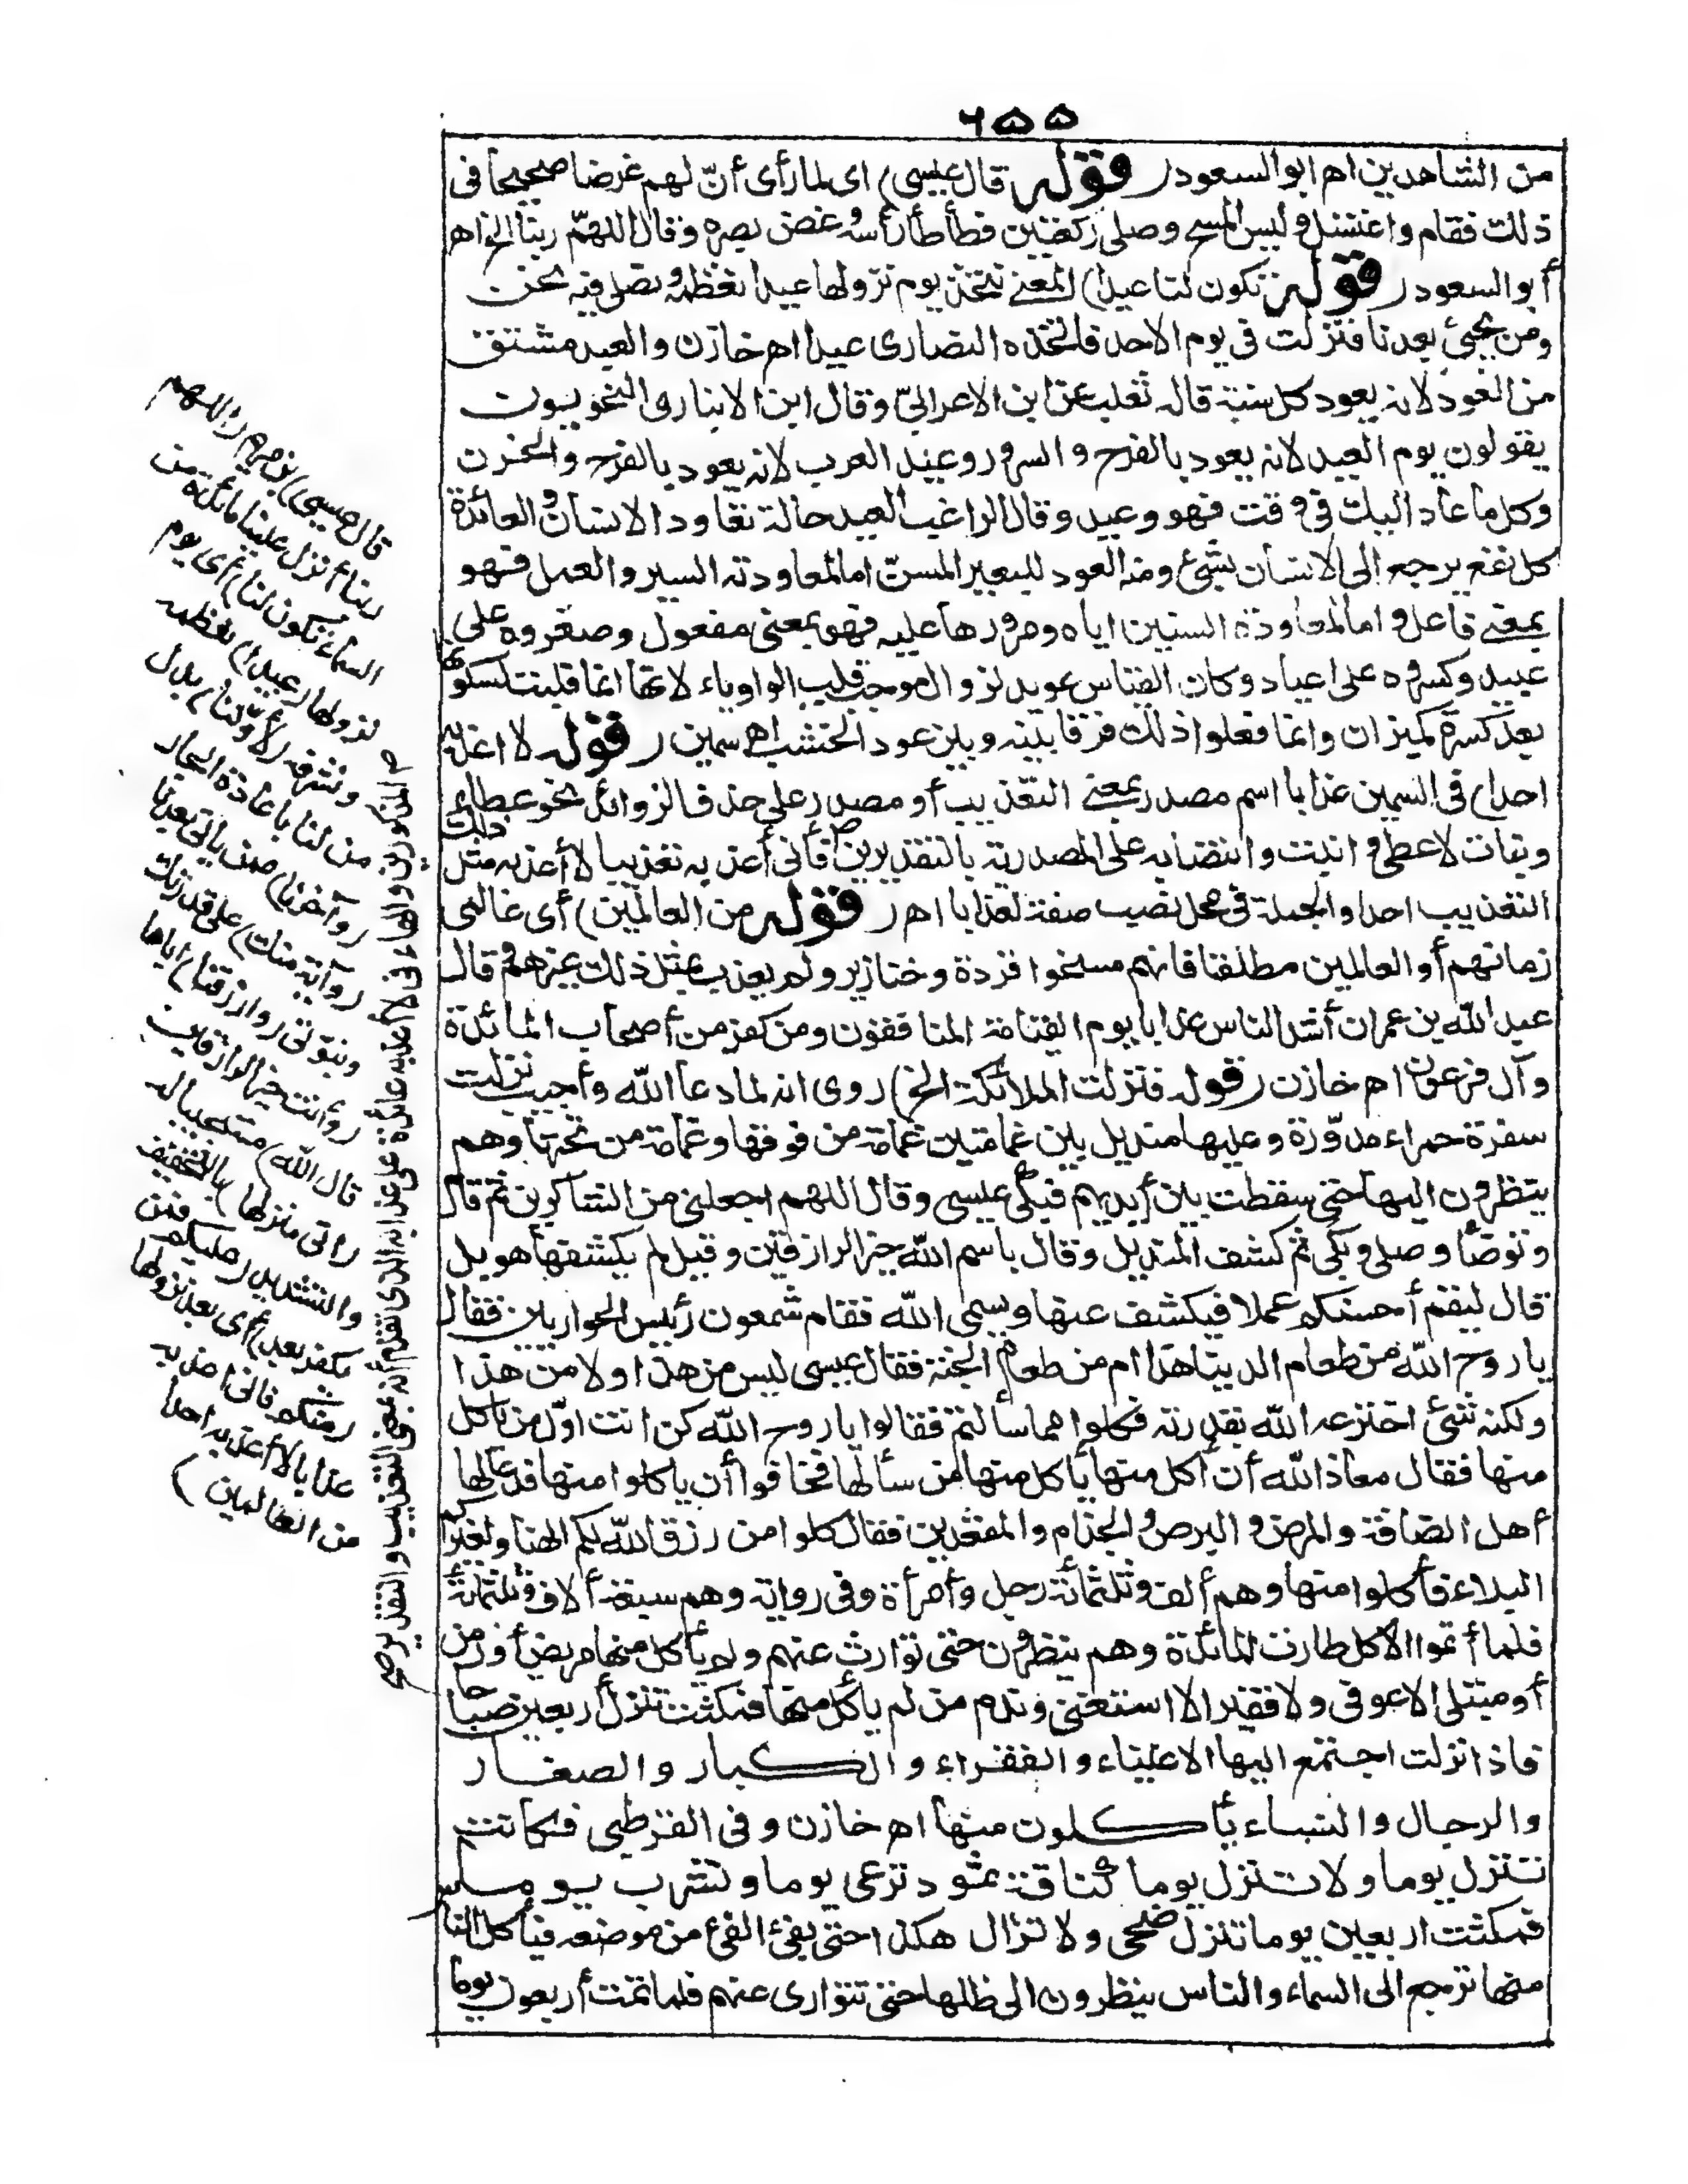 ٦٥٥
من الشاهدين اه ابو السعود ( قوله قال عيسى) اى لما رأى أنّ لهم غرضا صحيحا فى
ذلك فقام واغتسل ولبس المسح وصلى ركعتين فطأطأ رأسه وغض بصره وقال اللهمّ ربنا الخ اه
أبو السعود ( قوله تكون لنا عيدا) المعنى نتخذ يوم نزولها عيدا نعظمه ونصلى فيه نحن
ومن يجيئ بعدنا فنزلت فى يوم الاحد فاتخذه النصارى عيدا اه خازن والعيد مشتق
من العود لانه يعود كل سنة قاله ثعلب عن ابن الاعرابىّ وقال ابن الانبارى النحويون
يقولون يوم العيد لانه يعود بالفرح والسرور وعيد العرب لانه يعود بالفرح والحزن
وكل ما عاد اليك فى وقت فهو وعيد وقال الراغب العيد حالة تعاود الانسان والعائدة
كل نفع يرجع الى الانسان بشئ ومنه العود للبعير المسنّ اما لمعاودته السير والعمل فهو
بمعنى فاعل واما لمعاودة السنين اياه ومرورها عليه فهو بمعنى مفعول وصغروه على
عييد وكسروه على اعياد وكان القياس عويد لزوال موجب قلب الواو ياء لانها انما قلبت لسكونها
بعد كسرة كميزان وانما فعلوا ذلك فرقا بينه وبين عود الخشب اه سمين ( قوله لا اعذبه
احدا) فى السمين عذابا اسم مصدر بمعنى التعذيب أو مصدر على حذف الزوائد نحو عطاء
ونبات لاعطى وانبت وانتصابه على المصدرية بالتقديرين فانى أعذبه تعذيبا لا أعذب مثل ذلك
التعذيب احدا والجملة فى محل نصب صفة لعذابا اه ( قوله من العالمين) أى عالمى
زمانهم أو العالمين مطلقا فانهم مسخوا قردة وخنازير ولم يعذب بمثل ذلك غيرهم قال
عبد الله بن عمران أشد الناس عذابا يوم القيامة المنافقون ومن كفر من أصحاب المائدة
وآل فرعون اه خازن ( قوله فنزلت الملائكة الخ) روى انه لما دعا الله وأجيب نزلت
سفرة حمراء مدوّرة وعليها منديل بين غمامتين غمامة من فوقها وغمامة من تحتها وهم
ينظرون اليها حتى سقطت بين أيديهم فبكى عيسى وقال اللهم اجعلنى من الشاكرين ثم قال
وتوضأ وصلى وبكى ثم كشف المنديل وقال باسم الله خير الرازقين وقيل لم يكشفها هو بل
قال ليقم أحسنكم عملا فيكشف عنها ويسمى الله فقام شمعون رئيس الحواريين فقال
يا روح الله من طعام الدنيا هذا ام من طعام الجنة فقال عيسى ليس من هذا ولا من هذا
ولكنه شئ اخترعه الله بقدرته فكلوا مما سألتم فقالوا يا روح الله كن انت اوّل من ياكل
منها فقال معاذ الله أن آكل منها يأكل منها من سألها فخافوا أن ياكلوا منها فدعا لها
أهل الفاقة والمرض والبرص والجذام والمقعدين فقال كلوا من رزق الله لكم الهنا ولغيركم
البلاء فأكلوا منها وهم ألف وثلثمائة رجل وأمرأة وفى رواية وهم سبعة ألاف وثلثمائة
فلما أتموا الاكل طارت المائدة وهم ينظرون حتى توارت عنهم ولم يأكل منها مريض أو زمن
أو مبتلى الا عوفى ولا فقير الا استغنى وندم من لم يأكل منها فمكثت تنزل أربعين صباحا
فاذا نزلت اجتمع اليها الاغنياء والفقراء والكبار والصغار
والرجال والنساء يأكلون منها اه خازن وفى القرطبى فكانت
تنزل يوما ولا تنزل يوما كناقة ثمود ترعى يوما وتشرب يوما
فمكثت اربعين يوما تنزل ضحى ولا تزال هكذا حتى يفئ الفئ من موضعه فيأكل الناس
منها ترجع الى السماء والناس ينظرون الى ظلها حتى تتوارى عنهم فلما تمت أربعون يوما
قال عيسى) بن مريم (اللهم
ربنا أنزل علينا مائدة من
السماء تكون لنا) أى يوم
نزولها (عيدا) نعظمه
ونشرفه (لأوّلنا) بدل
من لنا باعادة الجار
(وآخرنا) ممن يأتى بعدنا
(وآية منك) على قدرتك
ونبوّتى (وارزقنا) اياها
(وأنت خير الرازقين
قال الله) مستجيبا له
(انى منزلها) بالتخفيف
والتشديد (عليكم فمن
يكفر بعد) أى بعد نزولها
(منكم فانى اعذبه
عذابا لا أعذبه احدا
من العالمين)
المذكورين والهاء فى لا أعذبه عائدة على عذاب الذى تقدم أنه بمعنى التعذيب والتقدير